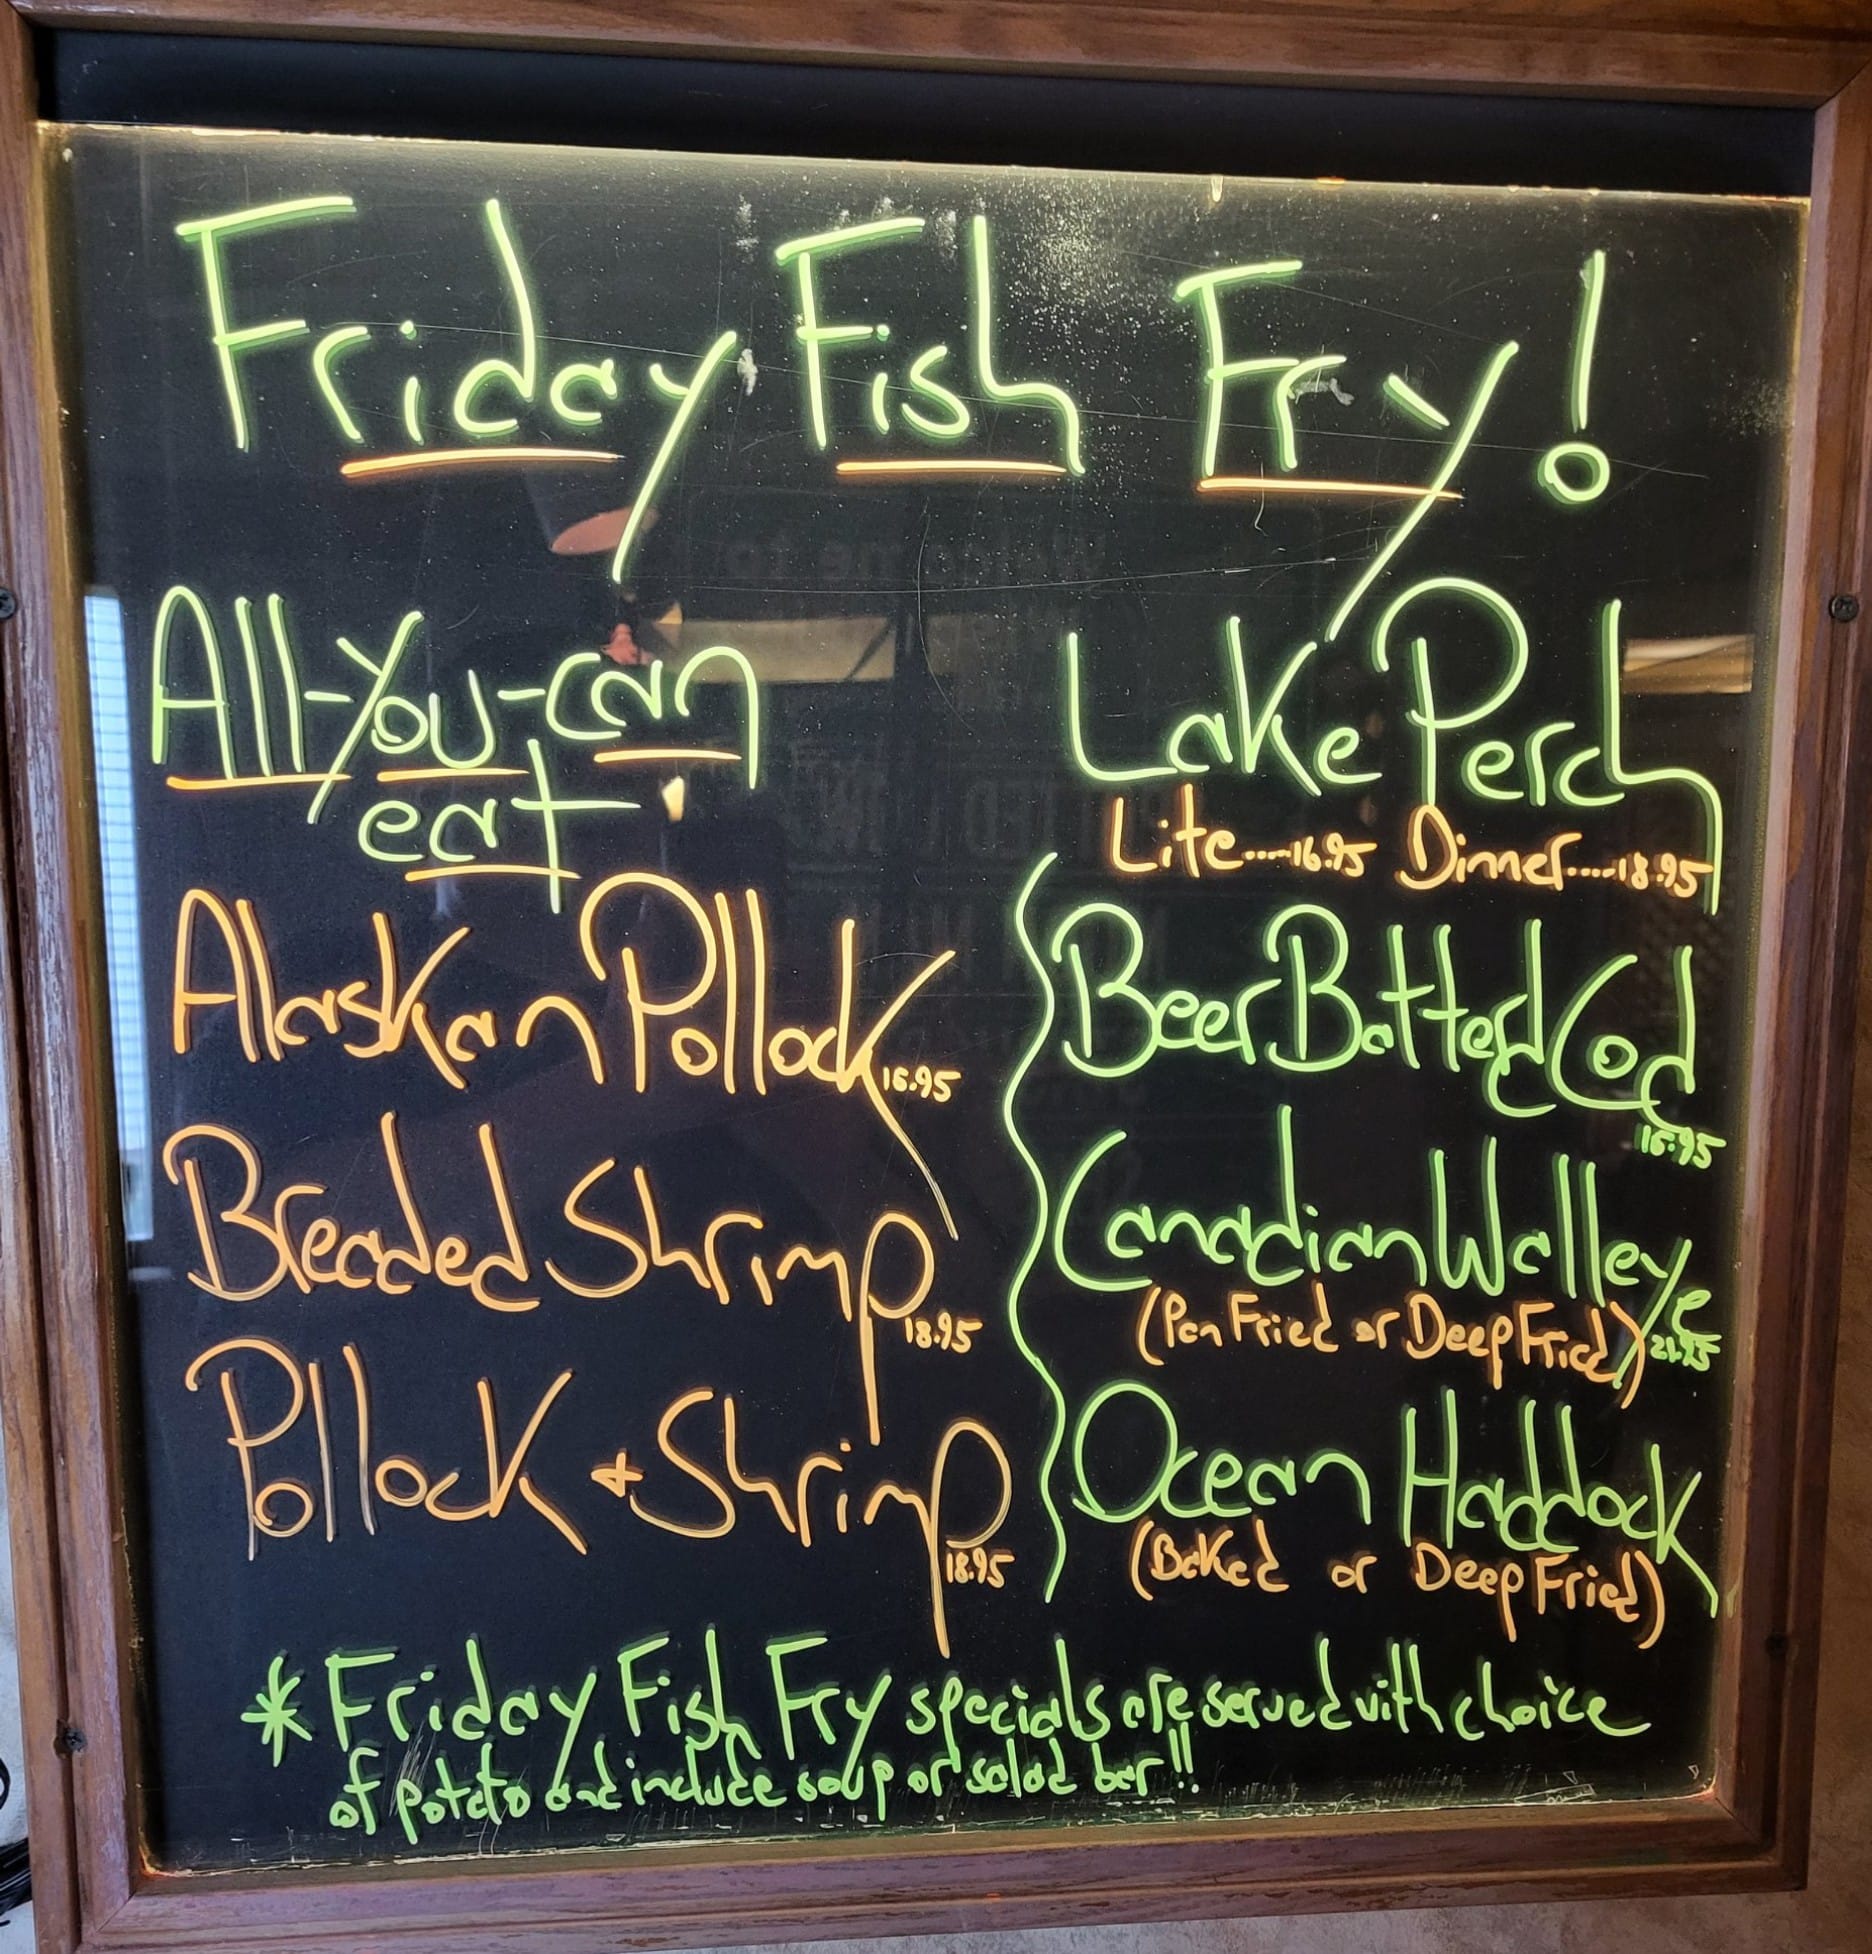 Friday Fish Fry!
All-you-can
eat
Alaskan Pollock
16.95
Breaded Shrimp
18.95
Pollock + Shrimp
18.95
Lake Perch
Lite.....16.95 Dinner.....18.95
Beer Batterd Cod
16.95
Canadian Walleye
(Pan Fried or Deep Fried)
Ocean Haddock
(Baked or Deep Fried)
* Friday Fish Fry specials are served with choice
of potato and include soup or salad bar!!